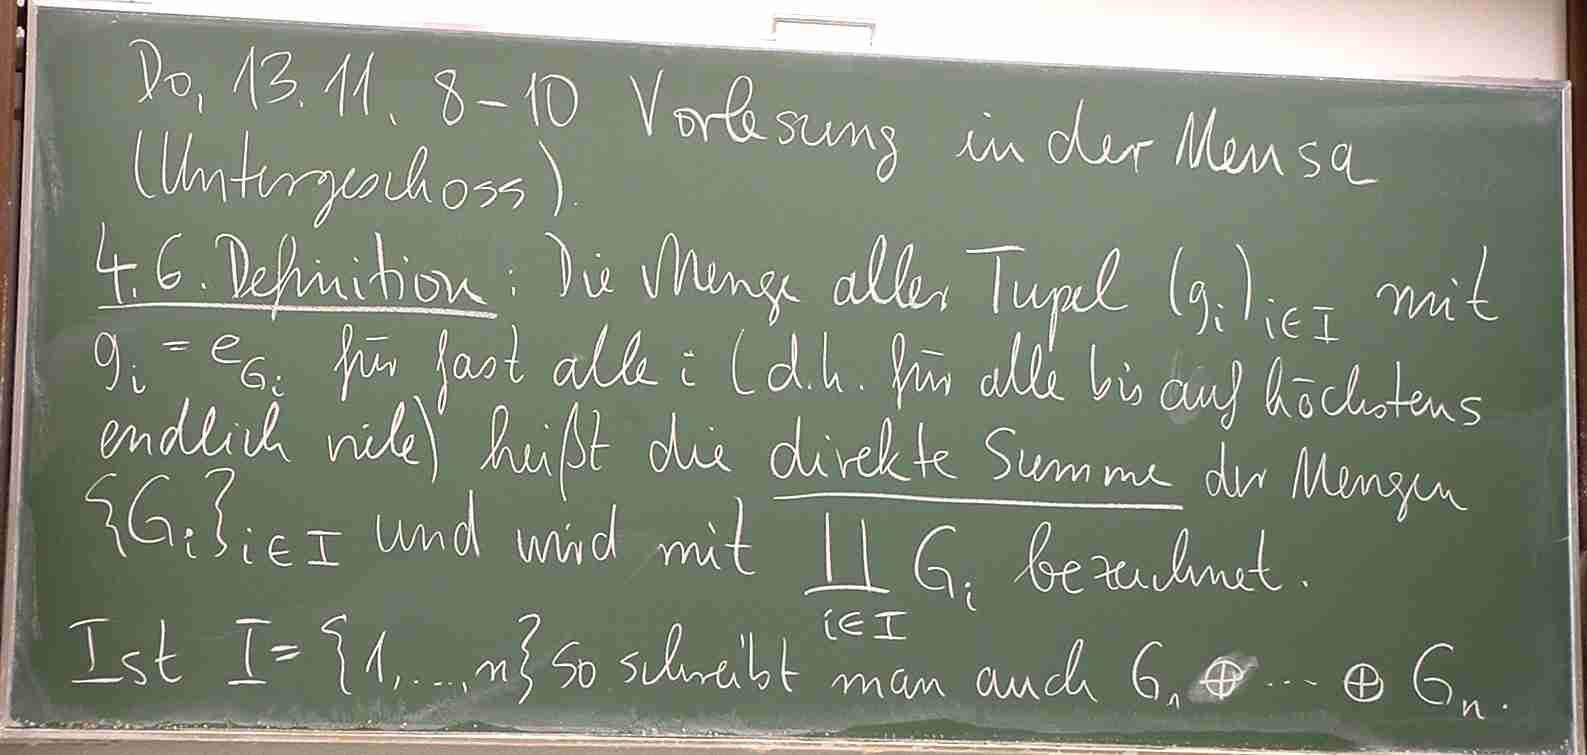 Do, 13.11. 8-10 Vorlesung in der Mensa
(Untergeschoss).
4.6. Definition: Die Menge aller Tupel (g_i)_{i∈I} mit
g_i = e_{G_i} für fast alle i (d.h. für alle bis auf höchstens
endlich viele) heißt die direkte Summe der Mengen
{G_i}_{i∈I} und wird mit ∐_{i∈I} G_i bezeichnet.
Ist I = {1,...,n} so schreibt man auch G_1 ⊕ ... ⊕ G_n.